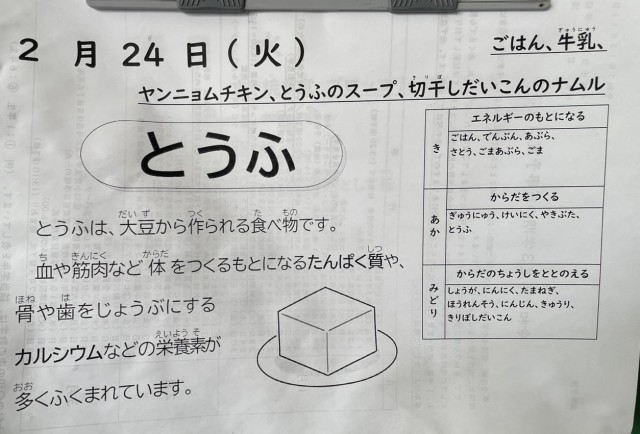 2月24日(火)
ごはん、牛乳、
ヤンニョムチキン、とうふのスープ、切干しだいこんのナムル
とうふ
とうふは、大豆から作られる食べ物です。
血や筋肉など体をつくるもとになるたんぱく質や、
骨や歯をじょうぶにする
カルシウムなどの栄養素が
多くふくまれています。
き
エネルギーのもとになる
ごはん、でんぷん、あぶら、
さとう、ごまあぶら、ごま
あか
からだをつくる
ぎゅうにゅう、けいにく、やきぶた、
とうふ
みどり
からだのちょうしをととのえる
しょうが、にんにく、たまねぎ、
ほうれんそう、にんじん、きゅうり、
きりぼしだいこん